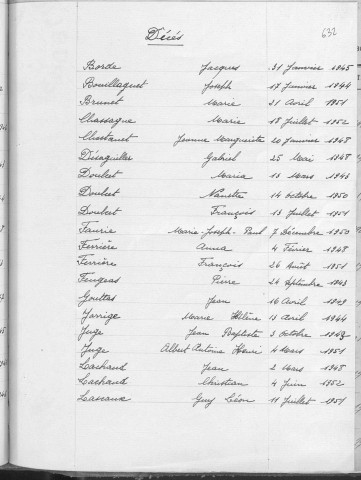 632
Décès
Borde Jacques 31 Janvier 1945
Bouillaguet Joseph 17 Janvier 1944
Brunet Marie 21 Avril 1951
Chassagne Marie 18 Juillet 1952
Chastanet Jeanne Marguerite 20 Janvier 1948
Désaguiller Gabriel 25 Mai 1948
Doulcet Maria 15 Mars 1945
Doulcet Nanette 14 Octobre 1950
Doulcet François 13 Juillet 1951
Faurie Marie-Joseph-Paul 7 Décembre 1950
Ferrière Anna 4 Février 1948
Ferrière François 26 Août 1951
Feugeas Pierre 24 Septembre 1943
Gouttas Jean 16 Avril 1949
Jarrige Marie Hélène 13 Avril 1944
Juge Jean Baptiste 3 Octobre 1943
Juge Albert Antoine Henri 4 Mars 1951
Lachaud Jean 2 Mars 1948
Lachaud Christian 4 Juin 1952
Lascaux Guy Léon 11 Juillet 1951